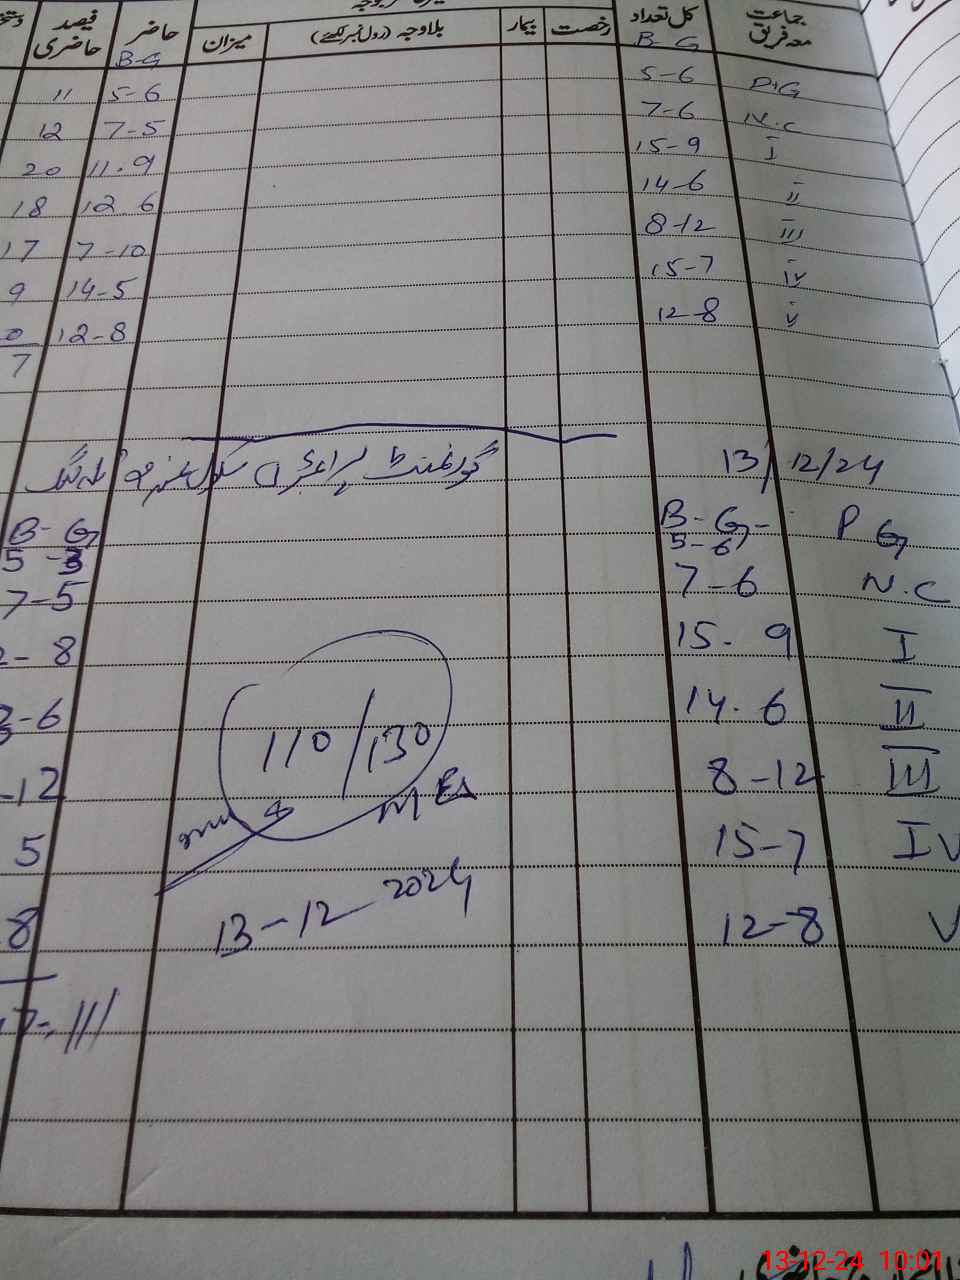 جماعت معہ فریق کل تعداد رخصت بیمار بلاوجہ (رول نمبر لکھئے) میزان حاضر فیصد حاضری
B-G B-G
P.G 5-6 5-6 11
N.C 7-6 7-5 12
I 15-9 11.9 20
II 14-6 12 6 18
III 8-12 7-10 17
IV 15-7 14-5 9
V 12-8 12-8 0
7
13/12/24 گورنمنٹ پرائمری سکول
P G B-G- B-G
5-6 5-3
N.C 7-6 7-5
I 15-9 - 8
II 14.6 3-6
III 8-12 -12
IV 15-7 5
V 12-8 8
110/130
MEA
13-12-2024
7-111
13-12-24 10:01